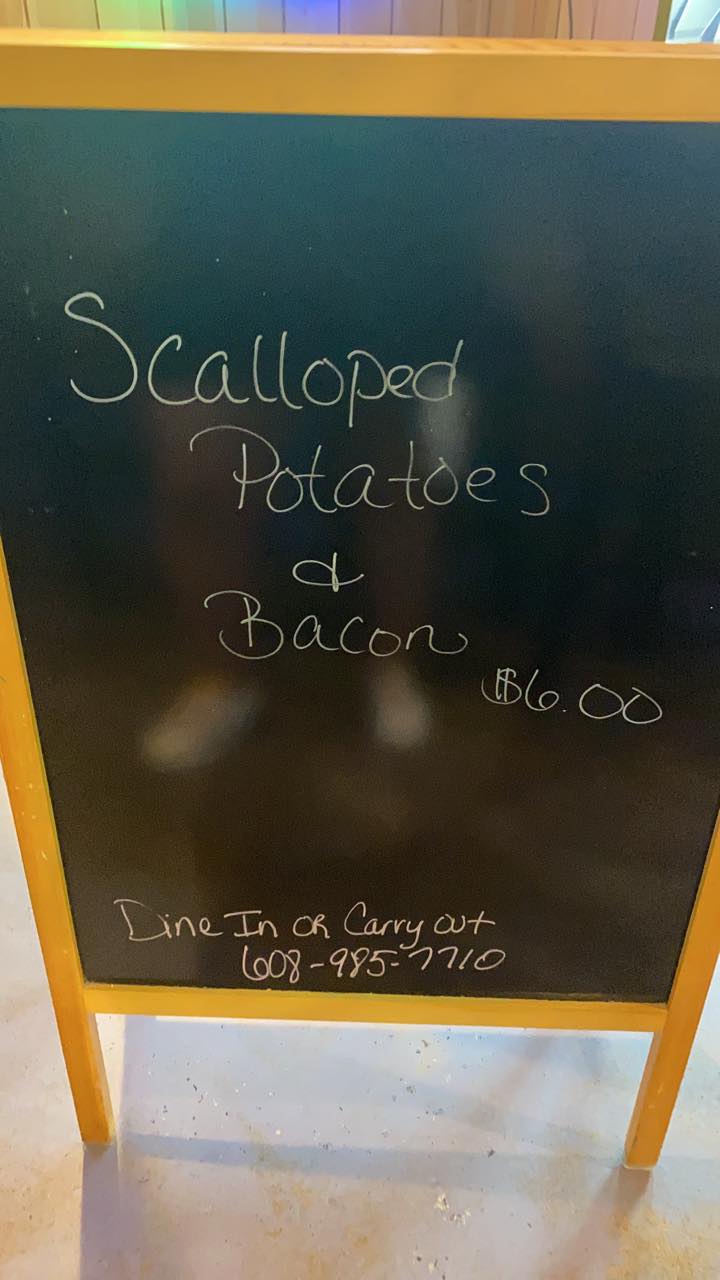 Scalloped
Potatoes
&
Bacon
$6.00
Dine In or Carry out
608-985-7710